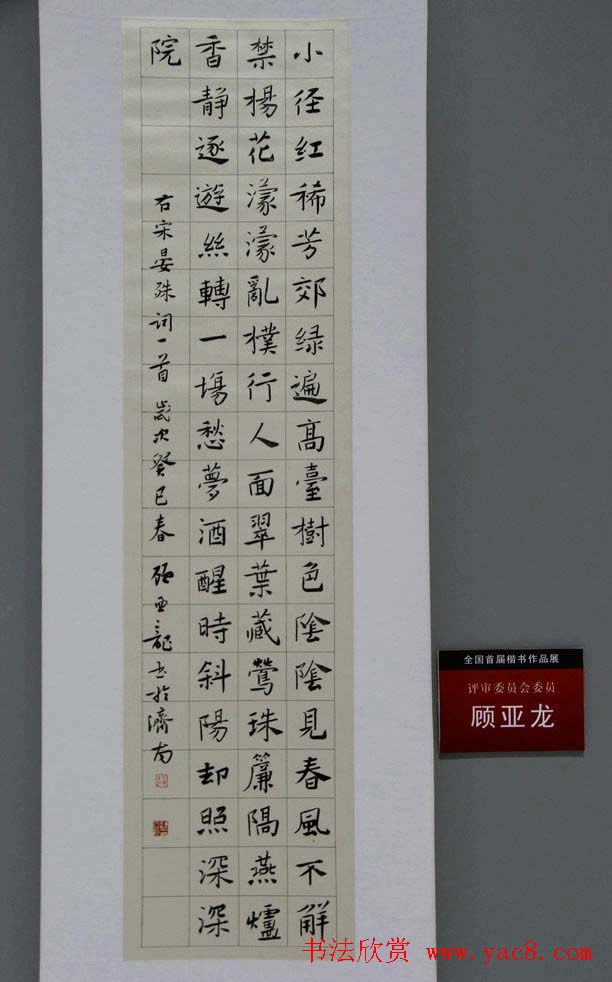 小径红稀芳郊绿遍高臺樹色陰陰見春風不解
禁楊花濛濛亂樸行人面翠葉藏鶯珠簾隔燕爐
香静逐遊絲轉一場愁夢酒醒時斜陽却照深深
院
右宋晏殊词一首 歲次癸巳春 顾亚龍书於濟南
全国首届楷书作品展
评审委员会委员
顾亚龙
书法欣赏 www.yac8.com